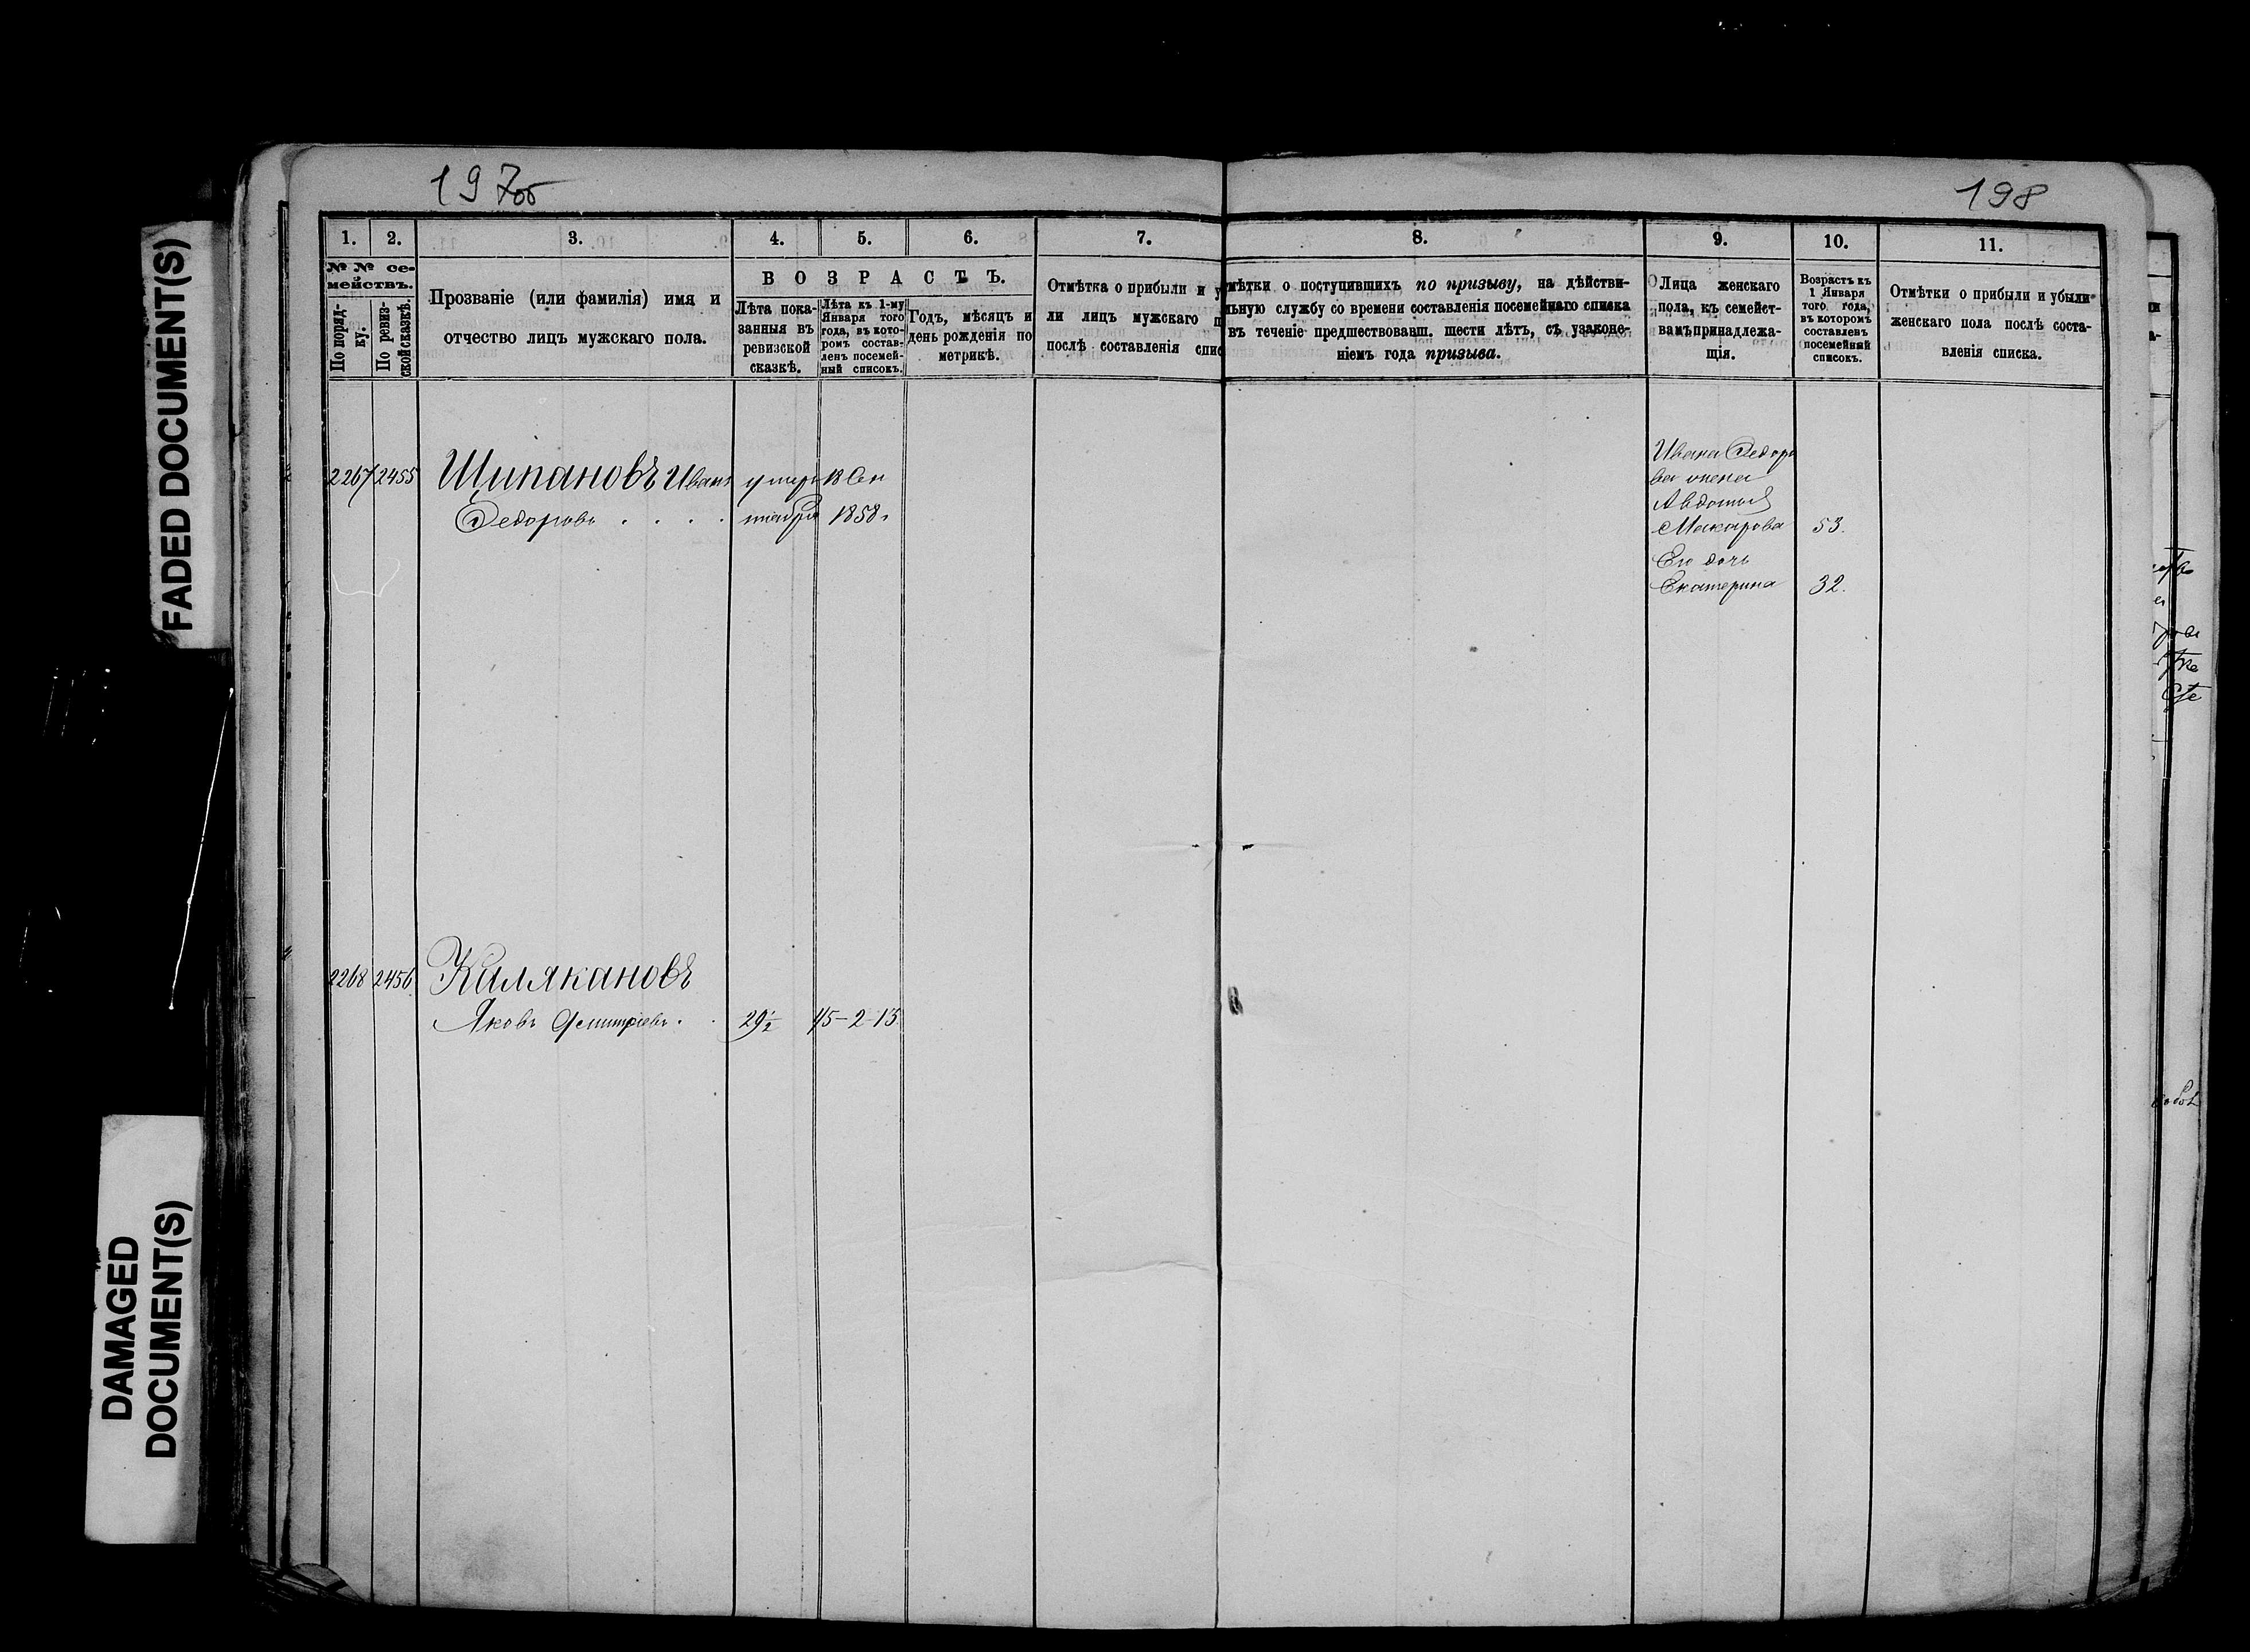 197об
198
FADED DOCUMENT(S)
DAMAGED
DOCUMENT(S)
1.
2.
3.
4.
5.
6.
7.
8.
9.
10.
11.
№ № се-
мействъ.
По поряд-
ку.
По ревиз-
ской сказкѣ.
Прозваніе (или фамилія) имя и
отчество лицъ мужскаго пола.
ВОЗРАСТЪ.
Лѣта пока-
занныя въ
ревизской
сказкѣ.
Лѣта къ 1-му
Января того
года, въ кото-
ромъ состав-
ленъ посемей-
ный списокъ.
Годъ, мѣсяцъ и
день рожденія по
метрикѣ.
Отмѣтка о прибыли и у
ли лицъ мужскаго п
послѣ составленія спис
мѣтки о поступившихъ по призыву, на дѣйстви-
льную службу со времени составленія посемейнаго списка
въ теченіе предшествовавш. шести лѣтъ, съ узаконе-
ніемъ года призыва.
Лица женскаго
пола, къ семейст-
вамъ принадлежа-
щія.
Возрастъ къ
1 Января
того года,
въ которомъ
составленъ
посемейный
списокъ.
Отмѣтки о прибыли и убыли
женскаго пола послѣ соста-
вленія списка.
2267 2455 Шипановъ Иванъ умеръ 18 Сен
Федоровъ . . . . тября 1858.
Ивана Федоро
ва жена
Авдотья
Макарова 53.
Его дочь
Екатерина 32.
2268 2456 Калякановъ
Яковъ Дмитріевъ . . 29½ 45-2-13